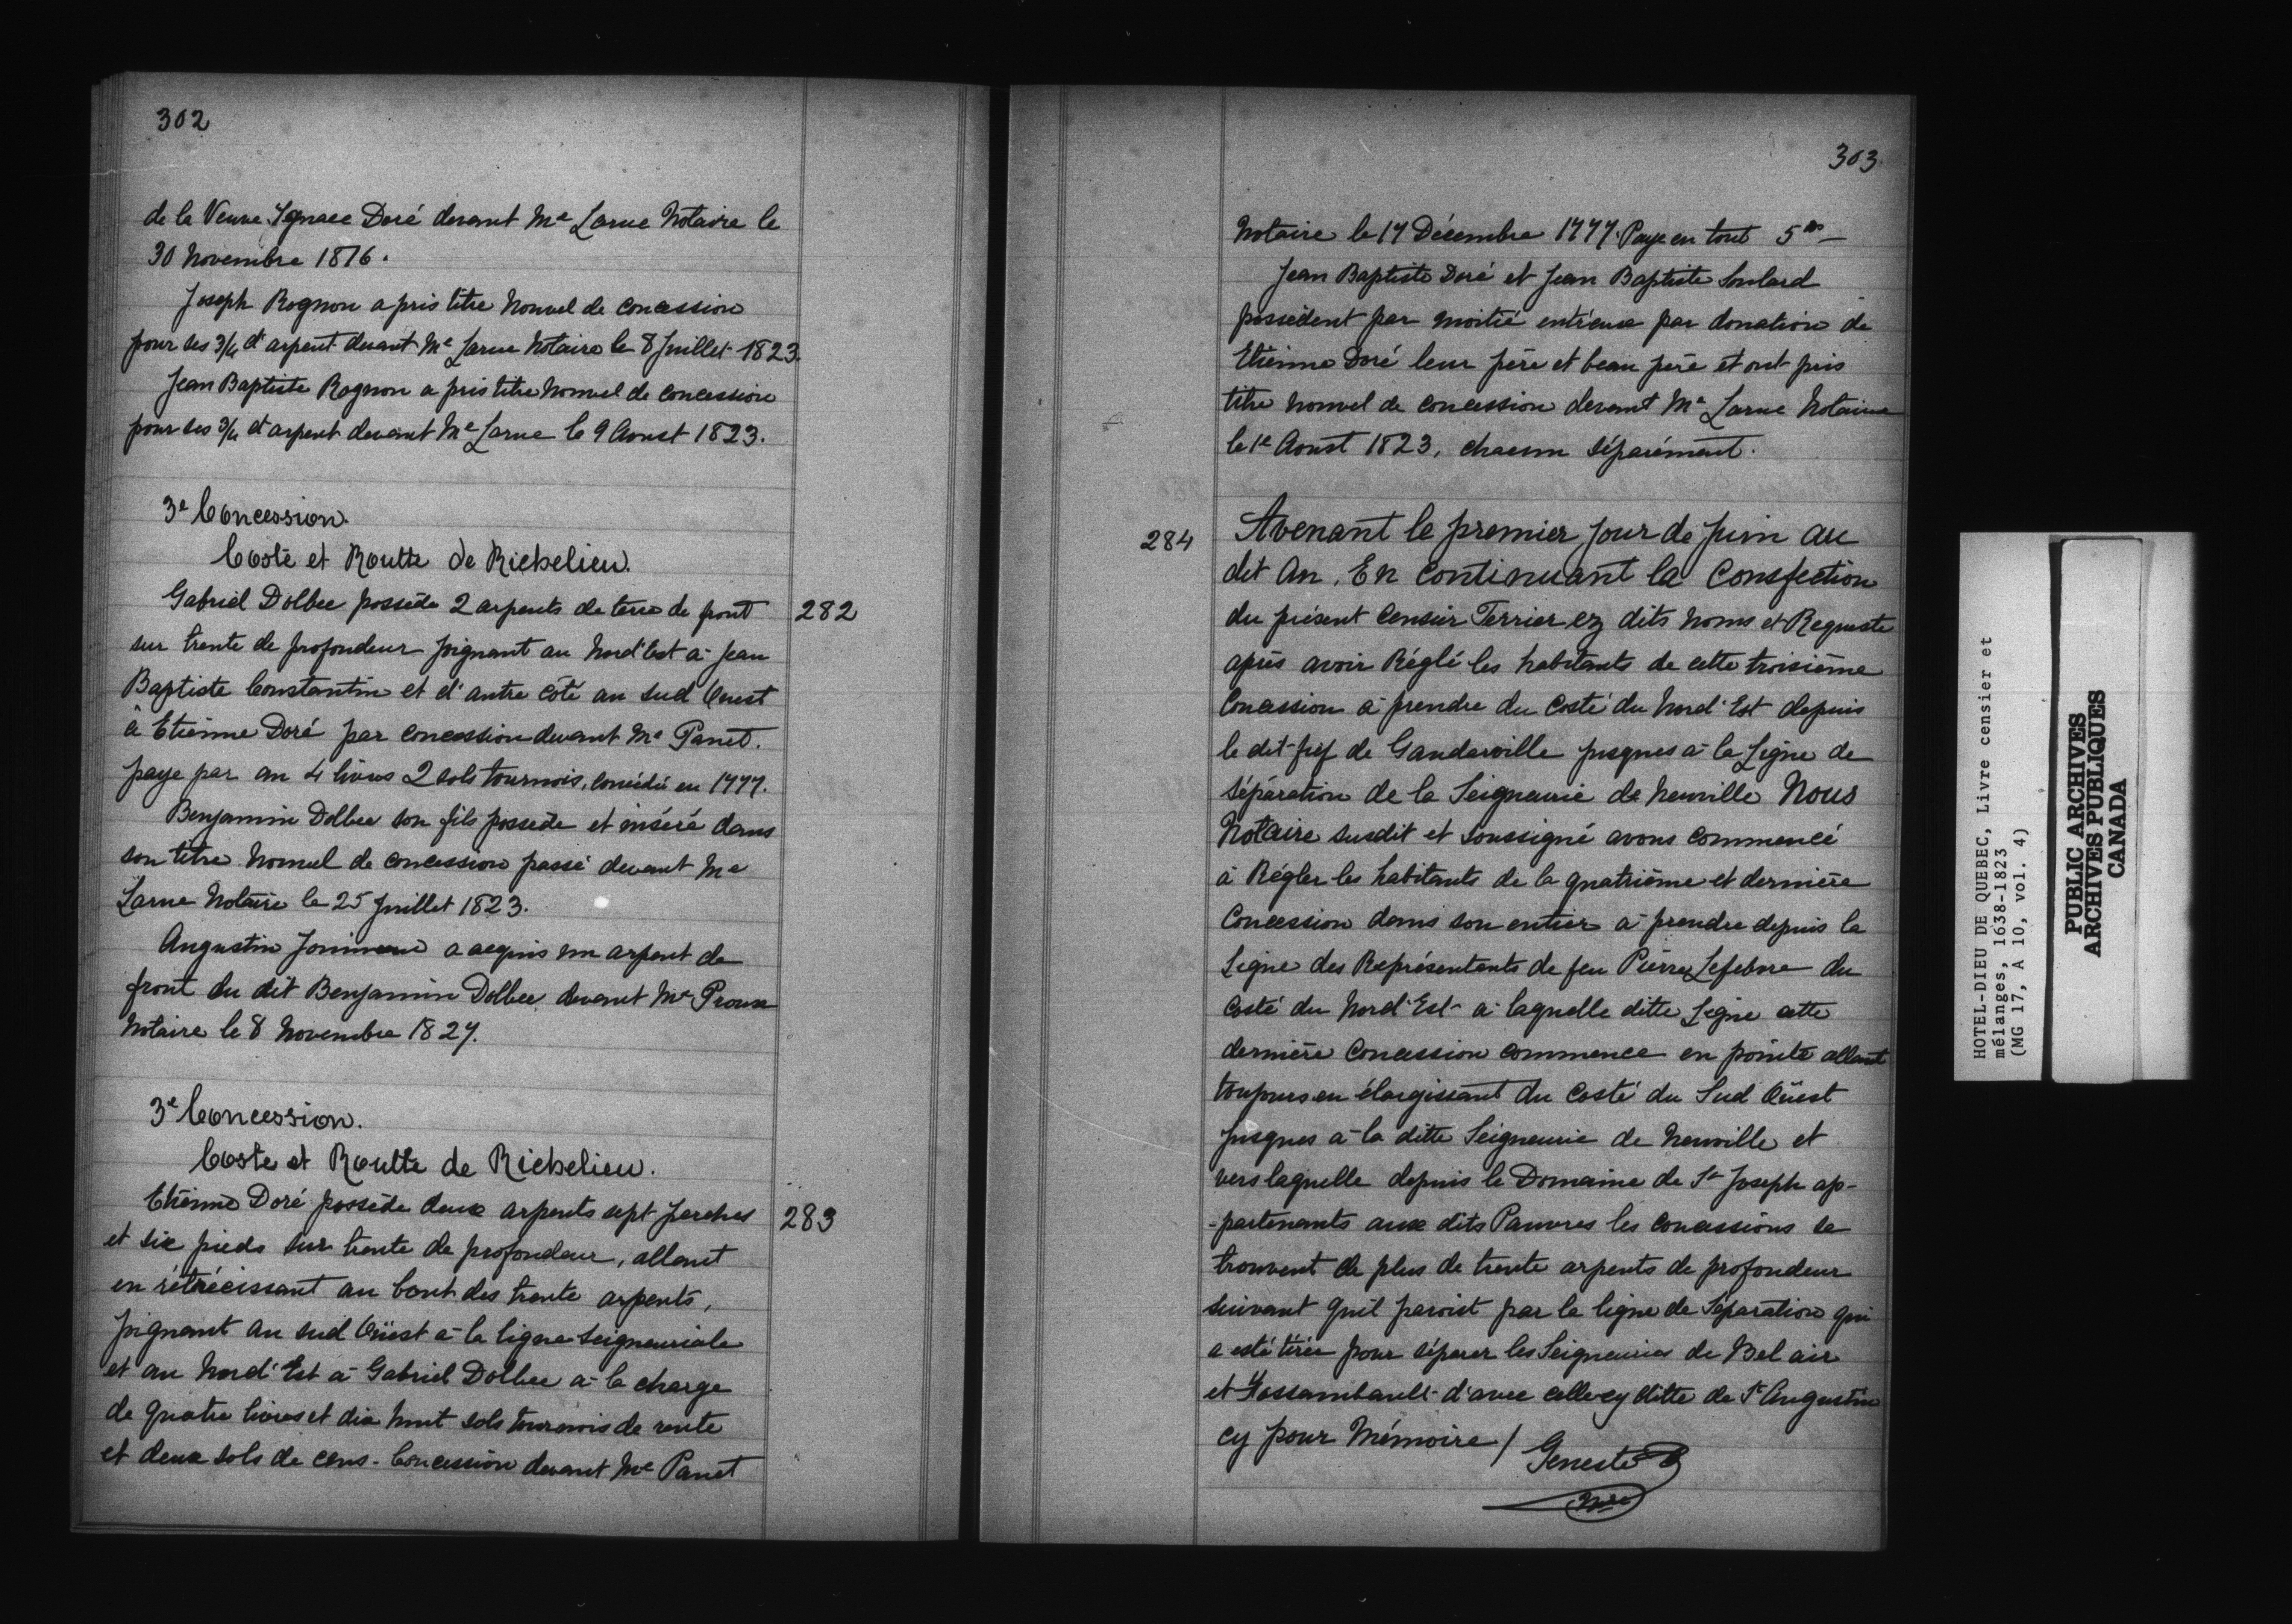 302
de la Veuve Ignace Doré devant Me Larue Notaire le
30 Novembre 1816.
Joseph Rognon a pris titre Nouvel de Concession
pour ses 3/4 d'arpent devant Me Larue Notaire le 8 Juillet 1823.
Jean Baptiste Rognon a pris titre Nouvel de Concession
pour ses 3/4 d'arpent devant Me Larue le 9 Aoust 1823.
3e Concession.
Coste et Routte de Richelieu.
282
Gabriel Dolbec possède 2 arpents de terre de front
sur trente de profondeur joignant au Nord'Est à Jean
Baptiste Constantin et d'autre côté au Sud Ouest
à Etienne Doré par concession devant Me Panet.
paye par an 4 livres 2 sols tournois, concédé en 1777.
Benjamin Dolbec son fils possède et inséré dans
son titre Nouvel de concession passé devant Me
Larue Notaire le 25 Juillet 1823.
Augustin Jonineau a acquis un arpent de
front du dit Benjamin Dolbec devant Me Proux
Notaire le 8 Novembre 1827.
3e Concession.
Coste et Routte de Richelieu.
283
Etienne Doré possède deux arpents sept perches
et six pieds sur trente de profondeur, allant
en rétrécissant au bout des trente arpents,
joignant au Sud Oüest à la ligne Seigneuriale
et au Nord'Est à Gabriel Dolbec à la charge
de quatre livres et dix huit sols tournois de rente
et deux sols de cens. Concession devant Me Panet
303.
Notaire le 17 Décembre 1777. Paye en tout 5
Jean Baptiste Doré et Jean Baptiste Soulard
possèdent par moitié entr'eux par donation de
Etienne Doré leur père et beau père et ont pris
titre Nouvel de concession devant Me Larue Notaire
le 1e Aoust 1823, chacun séparément.
284
Avenant le premier jour de Juin au
dit An, En Continuant la Consfection
du présent Censier Terrier ez dits Noms et Requeste
après avoir Réglé les habitants de cette troisième
Concession à prendre du Costé du Nord'Est depuis
le dit fief de Gandarville jusques à la Ligne de
séparation de la Seigneurie de Neuville Nous
Notaire susdit et soussigné avons commencé
à Régler les habitants de la quatrième et dernière
Concession dans son entier à prendre depuis la
Ligne des Représentants de feu Pierre Lefebvre du
Costé du Nord'Est à laquelle ditte Ligne cette
dernière Concession commence en pointe allant
toujours en élargissant du Costé du Sud Oüest
jusques à la ditte Seigneurie de Neuville et
vers laquelle depuis le Domaine de St Joseph ap-
-partenants aux dits Pauvres les concessions se
trouvent de plus de trente arpents de profondeur
suivant qu'il paroist par la ligne de Séparation qui
a esté tirée pour séparer les Seigneuries de Bel air
et Fossambault d'avec celle cy ditte de St Augustin
cy pour Mémoire /
Geneste
Nre
HOTEL-DIEU DE QUEBEC, Livre censier et
mélanges, 1638-1823
(MG 17, A 10, vol. 4)
PUBLIC ARCHIVES
ARCHIVES PUBLIQUES
CANADA